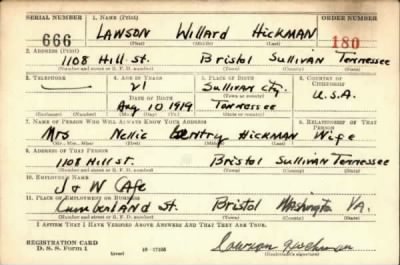 SERIAL NUMBER 1. NAME (Print) ORDER NUMBER
666 LAWSON Willard HICKMAN 180
(First) (Middle) (Last)
2. ADDRESS (Print)
1108 Hill st. Bristol Sullivan Tennessee
(Number and street or R. F. D. number) (Town) (County) (State)
3. TELEPHONE 4. AGE IN YEARS 5. PLACE OF BIRTH 6. COUNTRY OF CITIZENSHIP
21 Sullivan Cty.
DATE OF BIRTH (Town or county) U.S.A.
Aug 10 1919 Tennessee
(Mo.) (Day) (Yr.) (State or country)
7. NAME OF PERSON WHO WILL ALWAYS KNOW YOUR ADDRESS 8. RELATIONSHIP OF THAT PERSON
Mrs Nellie Gentry HICKMAN Wife
(Mr., Mrs., Miss) (First) (Middle) (Last)
9. ADDRESS OF THAT PERSON
1108 Hill st. Bristol Sullivan Tennessee
(Number and street or R. F. D. number) (Town) (County) (State)
10. EMPLOYER'S NAME
J & W Cafe
11. PLACE OF EMPLOYMENT OR BUSINESS
Cumberland st Bristol Washington VA.
(Number and street or R. F. D. number) (Town) (County) (State)
I AFFIRM THAT I HAVE VERIFIED ABOVE ANSWERS AND THAT THEY ARE TRUE.
REGISTRATION CARD
D. S. S. Form 1 (over) Lawson Hickman
(Registrant's signature)